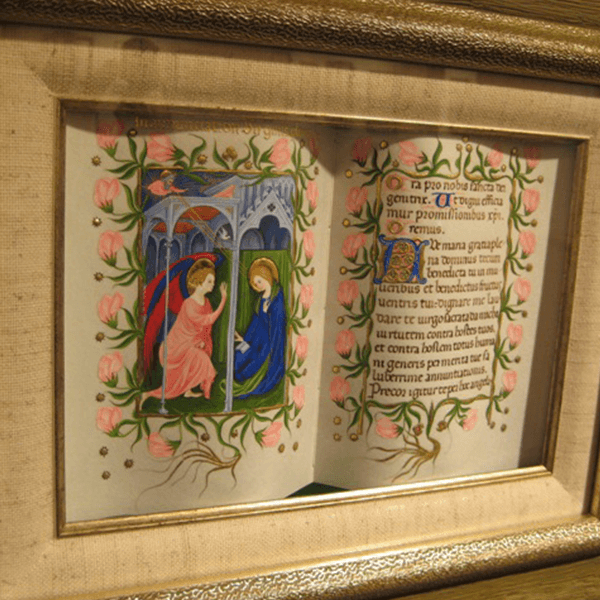 Ora pro nobis sancta dei
genitrix. Ut digni efficia
mur promissionibus xpi.
Oremus.
Ave maria gratia ple
na dominus tecum
benedicta tu in mu
lieribus et benedictus fructus
ventris tui: dignare me lau
dare te virgo sacrata da michi
virtutem contra hostes tuos,
et contra hostem totius huma
ni generis
luberrime annuntiationis.
Precor igitur te per hoc angelo